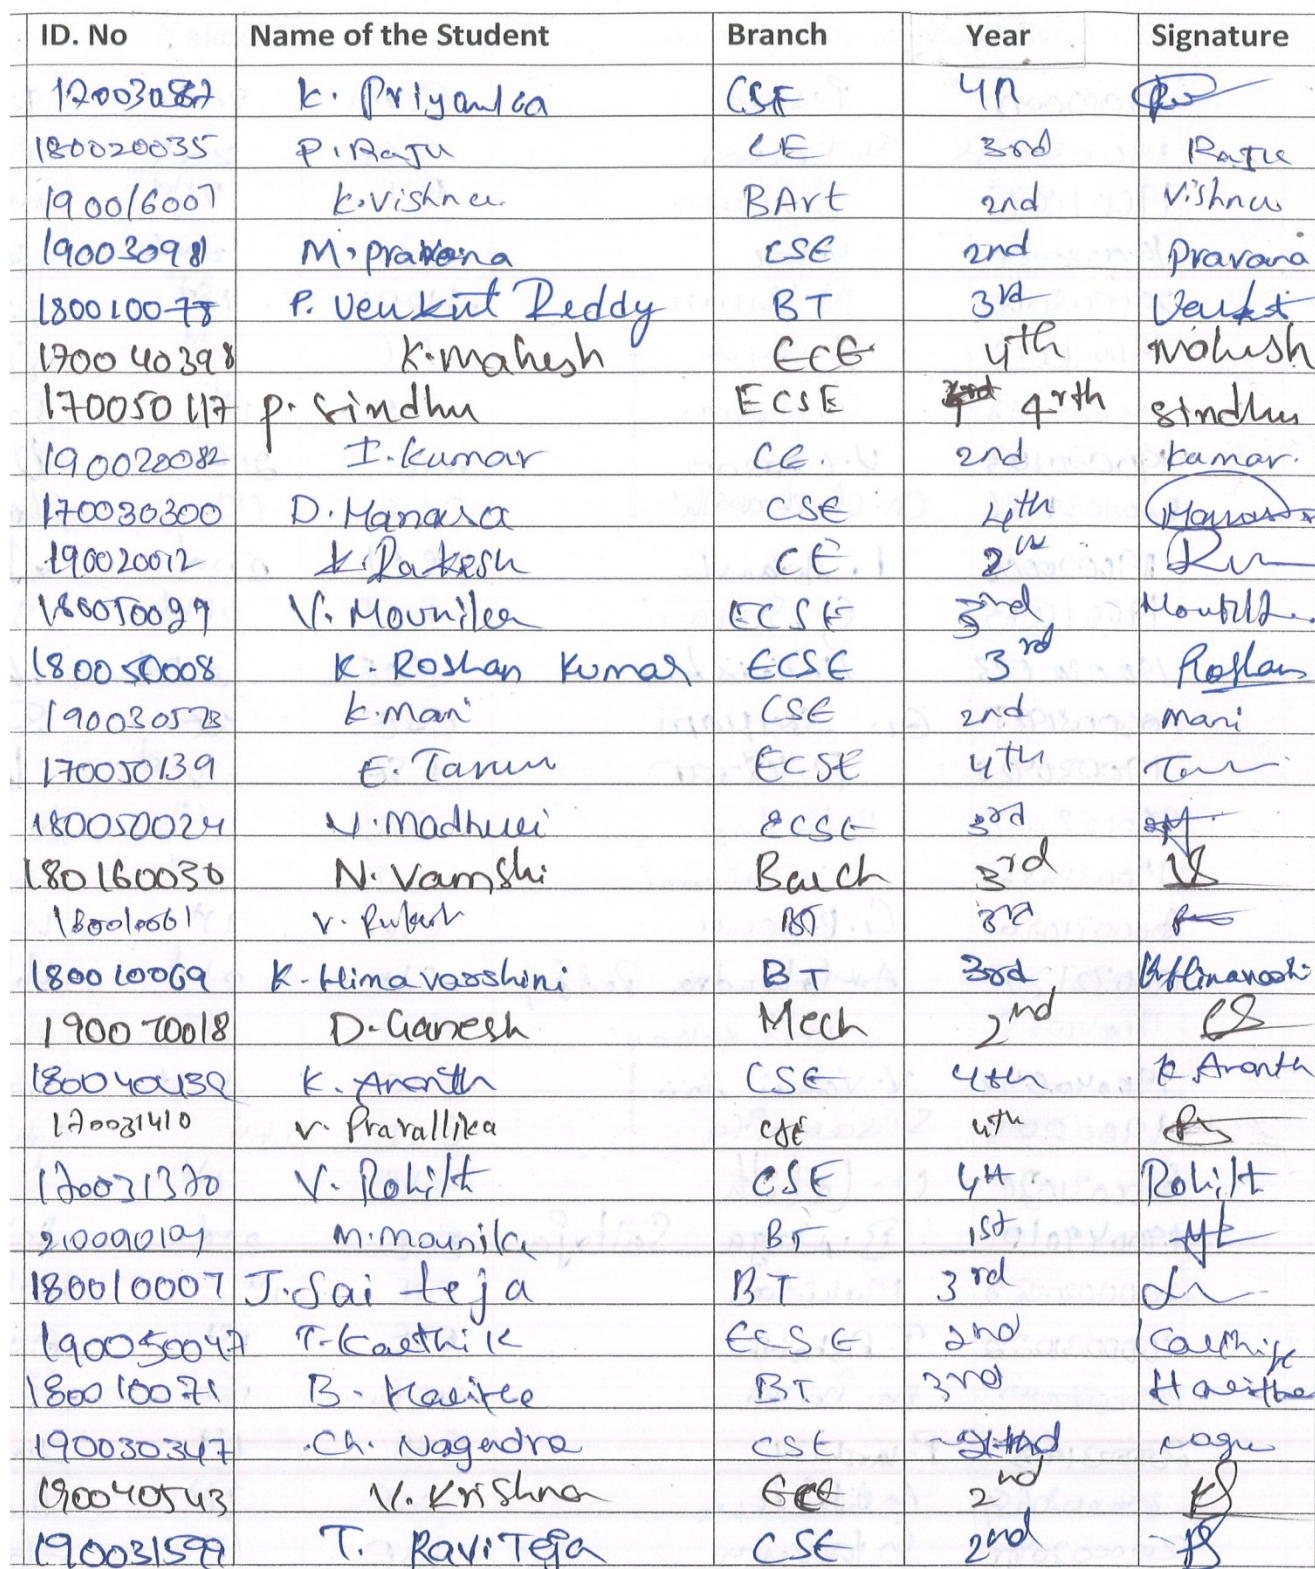 ID. No Name of the Student Branch Year Signature
170030887 K. Priyanka CSE 4th
180020035 P. Raju CE 3rd Raju
190016007 K. vishnu BArt 2nd Vishnu
190030981 M. pravana CSE 2nd Pravana
180010078 P. Venkat Reddy BT 3rd Venkat
170040398 K. Mahesh ECE 4th Mahesh
170050117 P. Sindhu ECSE 4rth Sindhu
190020082 I. Kumar CE. 2nd Kumar.
170030300 D. Manasa CSE 4th Manasa
190020012 K. Rakesh CE 2nd
180050029 V. Mounika ECSE 3rd
180050008 K. Roshan Kumar ECSE 3rd Roshan
190030573 K. Mani CSE 2nd Mani
170050139 E. Tarun ECSE 4th
180050024 V. Madhuri ECSE 3rd
180160030 N. Vamshi Barch 3rd
180010061 V. BT 3rd
180010069 K. Himavarshini BT 3rd
190070018 D. Ganesh Mech 2nd
180040439 K. Ananth CSE 4th K. Ananth
170031410 V. Pravallika CSE 4th
170031370 V. Rohith CSE 4th Rohith
M. Mounika BT 1st
180010007 J. Sai teja BT 3rd
190050047 T. Karthik ECSE 2nd Karthik
180010071 B. BT 3rd
190030347 Ch. Nagendra CSE
190040543 V. Krishna 2nd
190031599 T. Ravi Teja CSE 2nd